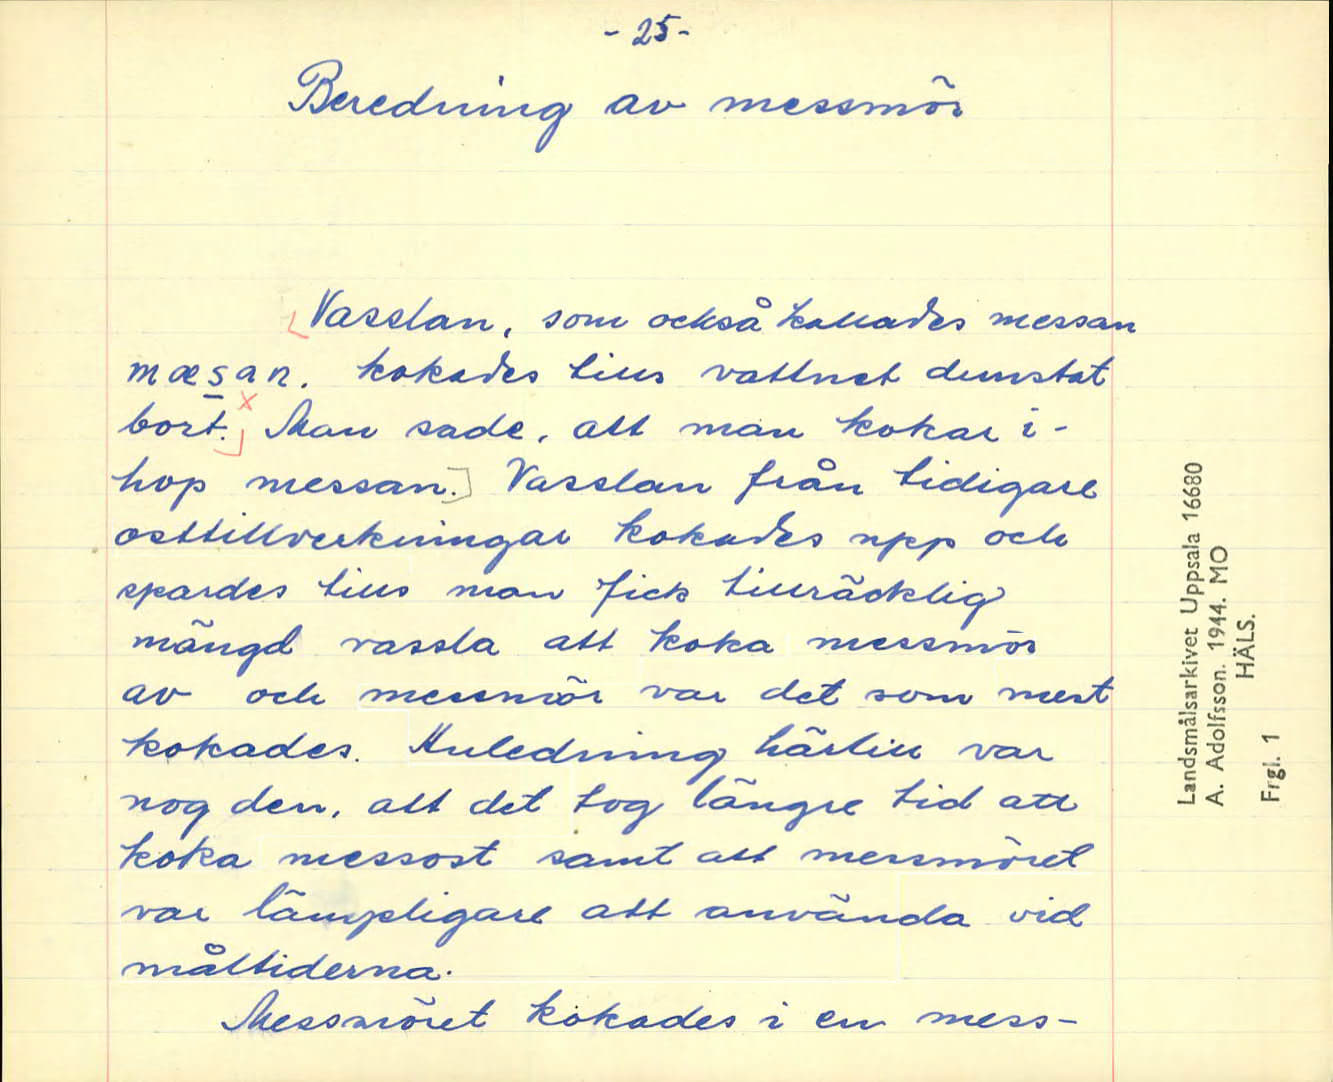 - 25 -
Beredning av messmör
Vasslan, som också kallades messan
mæsan. kokades tills vattnet dunstat
bort. Man sade, att man kokar i-
hop messan. Vasslan från tidigare
osttillverkningar kokades upp och
spardes tills man fick tillräcklig
mängd vassla att koka messmör
av och messmör var det som mest
kokades. Anledning härtill var
nog den, att det tog längre tid att
koka messost samt att messmöret
var lämpligare att använda vid
måltiderna.
Messmöret kokades i en mess-
Landsmålsarkivet Uppsala 16680
A. Adolfsson. 1944. MO
HÄLS.
Frgl. 1